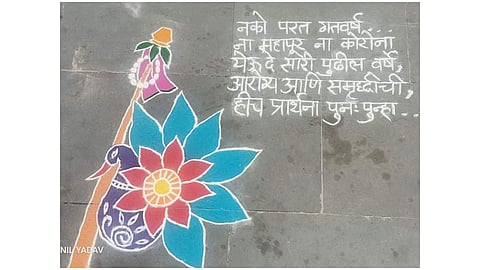 नको परत गतवर्ष...
ना महापूर ना कोरोना
येऊ दे सारी पुढील वर्षे,
आरोग्य आणि समृद्धीची,
हीच प्रार्थना पुनः पुन्हा...
NIL YADAV